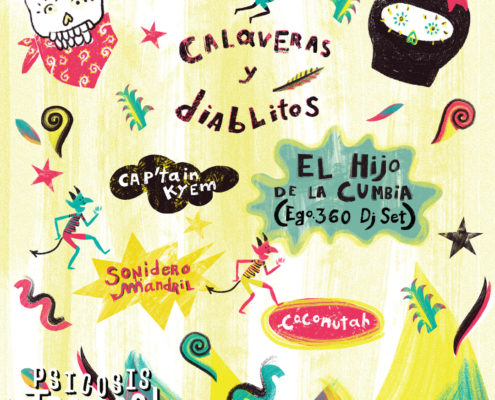 CALAVERAS
y
diABLitOS
CAP'tain
KYEM
EL Hijo
DE LA CUMBIA
(Ego.360 Dj Set)
SONIDERO
MANDRIL
Coconutah
PSICOSIS